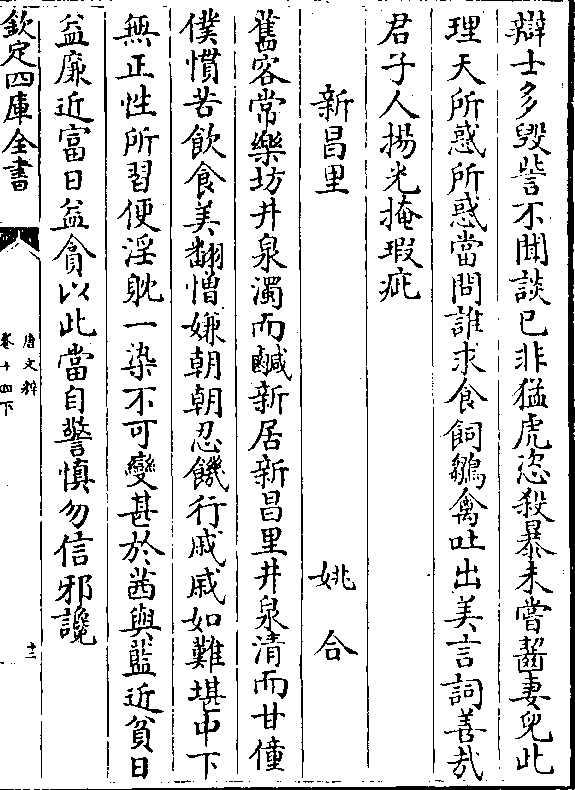 辯士多毀訾不聞談已非猛虎恣殺暴未嘗齧妻兒此
理天所惑所惑當問誰求食飼雛禽吐出美言詞善哉
君子人揚光掩瑕疵
新昌里 姚合
舊客常樂坊井泉濁而鹹新居新昌里井泉清而甘僮
僕慣苦飲食美翻憎嫌朝朝忍饑行戚戚如難堪中下
無正性所習便淫躭一染不可變甚於茜與藍近貧日
益廉近富日益貪以此當自警慎勿信邪讒
欽定四庫全書
唐文粹
卷十四下
十二